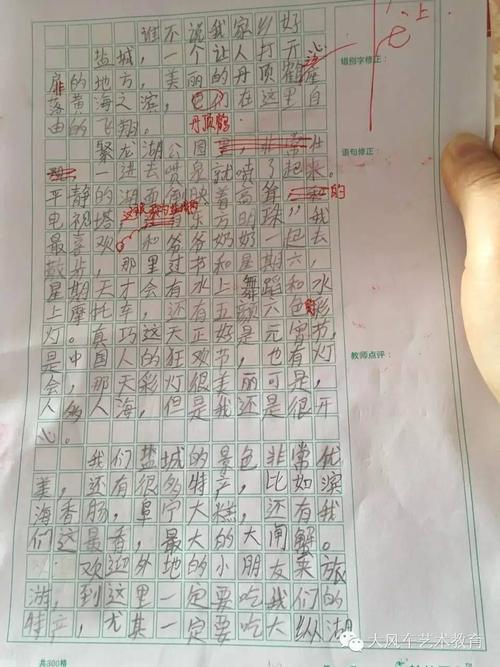 谁不说我家乡好
盐城，一个让人打开心
扉的地方，美丽的丹顶鹤
落黄海之滨，它们在这里自
由的飞翔。
丹顶鹤
聚龙湖公园
一进去喷泉就喷了起来。
平静的湖面倒映着高耸的
电视塔，东方明珠”我
最喜欢和爷爷奶奶一起去
散步，那里过节和星期六，
星期天才会有水上舞蹈和水
上摩托车，还有五颜六色彩
灯。真巧这天正好是元宵节，
是中国人的狂欢节，也有灯
会，那天彩灯很美丽可是，
人多人海，但是我还是很开
心。
我们盐城的景色非常优
美，还有很多特产，比如滨
海香肠，阜宁大糕，还有我
们这最香，最大的大闸蟹。
欢迎外地的小朋友来旅
游，到这里一定要吃我们的
特产，尤其一定要吃大纵湖
共300格
错别字修正：
上
语句修正：
教师点评：
大风车艺术教育